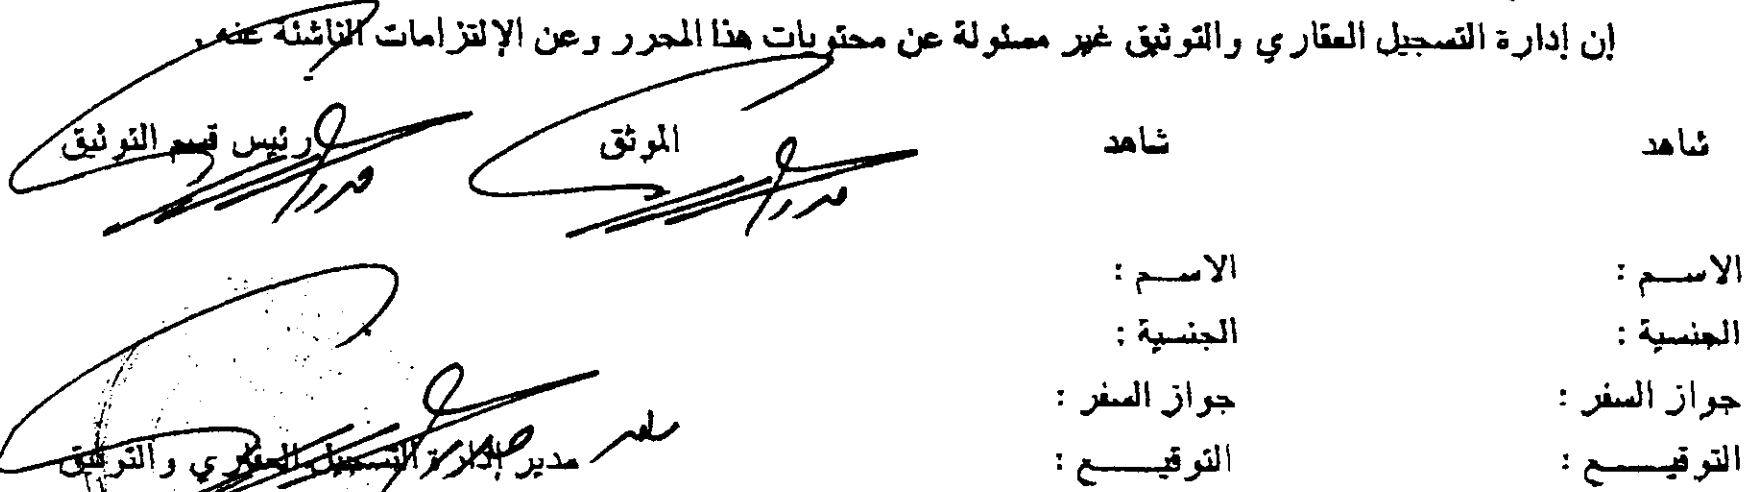 إن إدارة التسجيل العقاري والتوثيق غير مسئولة عن محتويات هذا المحرر وعن الإلتزامات الناشئة عنه.
شاهد شاهد الموثق رئيس قسم التوثيق
الاســم : الاســم :
الجنسية : الجنسية :
جواز السفر : جواز السفر :
التوقيــــع : التوقيــــع : مدير إدارة التسجيل العقاري والتوثيق